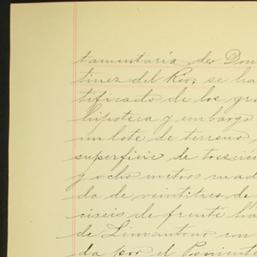 tamentaría de Don
tinez del Rio, se ha
tificado de los gra
hipoteca y embargo
un lote de terreno,
superficie de trescien
y ocho metros cuad
da de veintitres de
ciseis de frente ha
de Limantour con
da por el Poniente